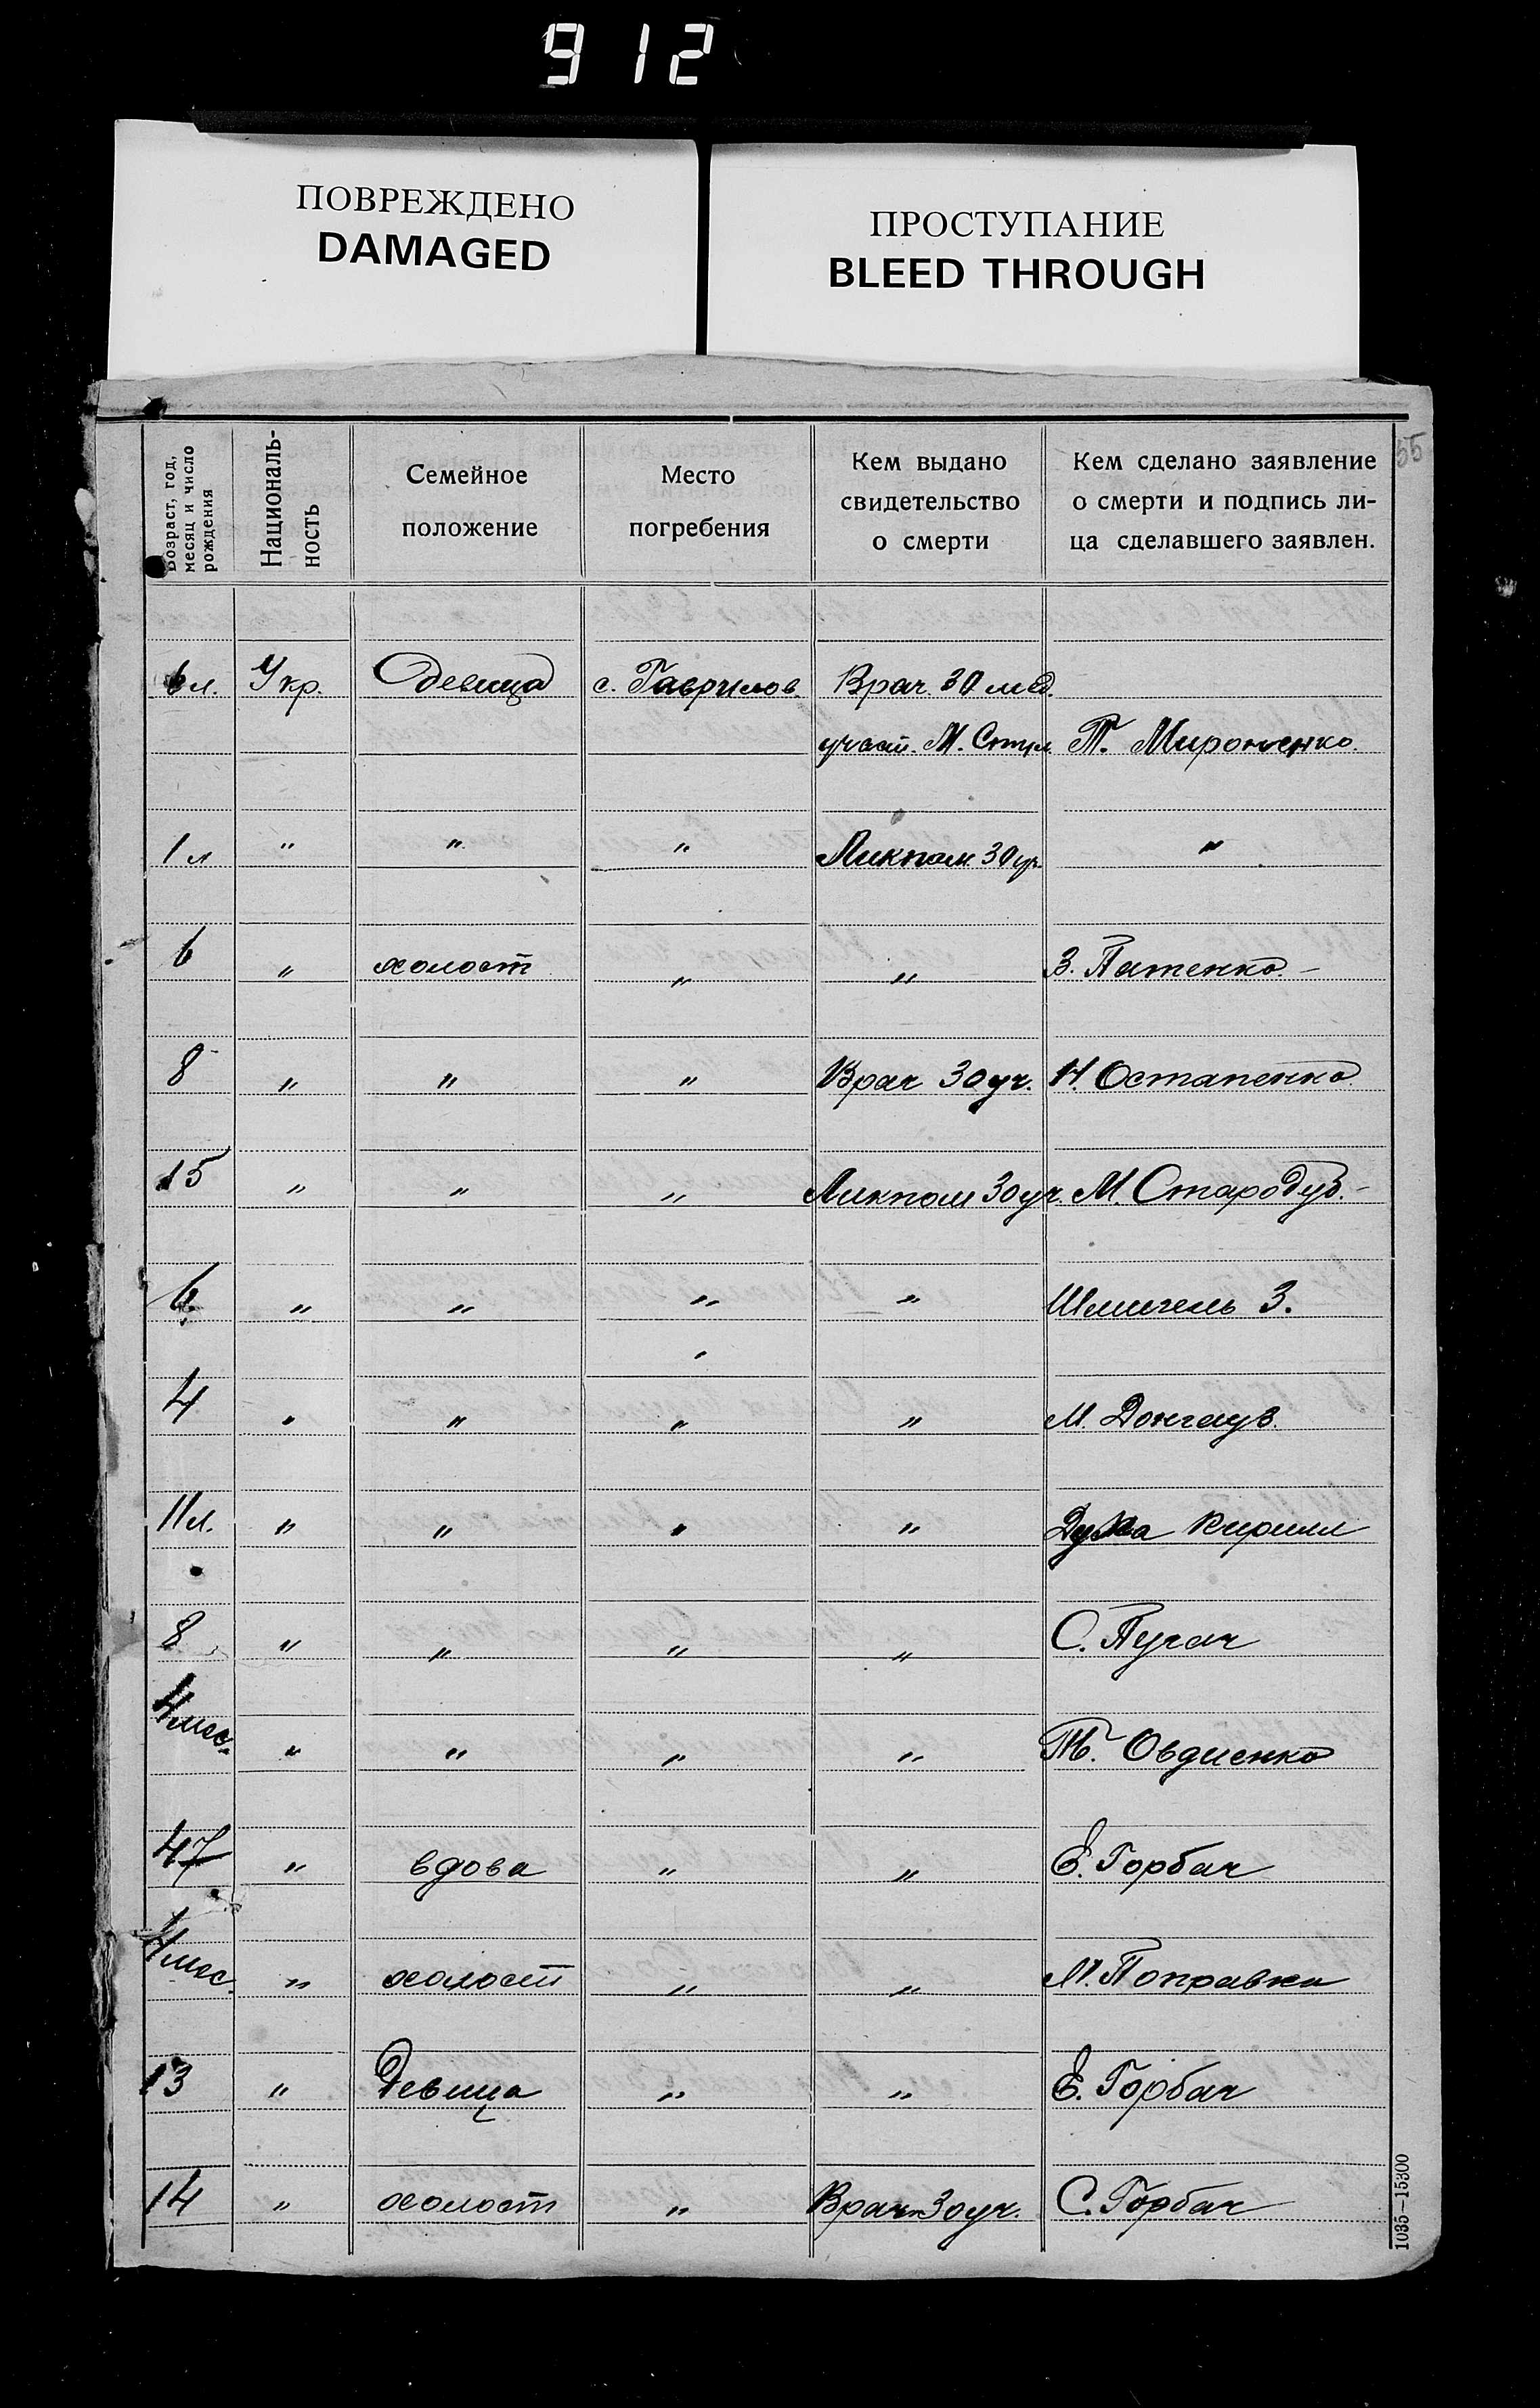 912
ПОВРЕЖДЕНО
DAMAGED
ПРОСТУПАНИЕ
BLEED THROUGH
55
Возраст, год,
месяц и число
рождения
Националь-
ность
Семейное
положение
Место
погребения
Кем выдано
свидетельство
о смерти
Кем сделано заявление
о смерти и подпись ли-
ца сделавшего заявлен.
6 л. Укр. Девица с. Гаврилов. Врач 30 мед.
участ. М. Т. Мироненко.
1 л " " " Ликпом 30 уч. "
6 " холост " " З. Патенко. -
8 " " " Врач 30 уч. Н. Остапенко
15 " " " Ликпом 30 уч. М. Стародуб. -
6 " " " " Шмигель З.
4 " " " " М.
11 л. " " " " Кирилл
8 " " " " С. Пугач
4 мес. " " " " Овдиенко
47 " вдова " " Е. Горбач
4 мес. " холост " " М. Поправка
13 " Девица " " Е. Горбач
14 " холост " Врач 30 уч. С. Горбач
1035—15300